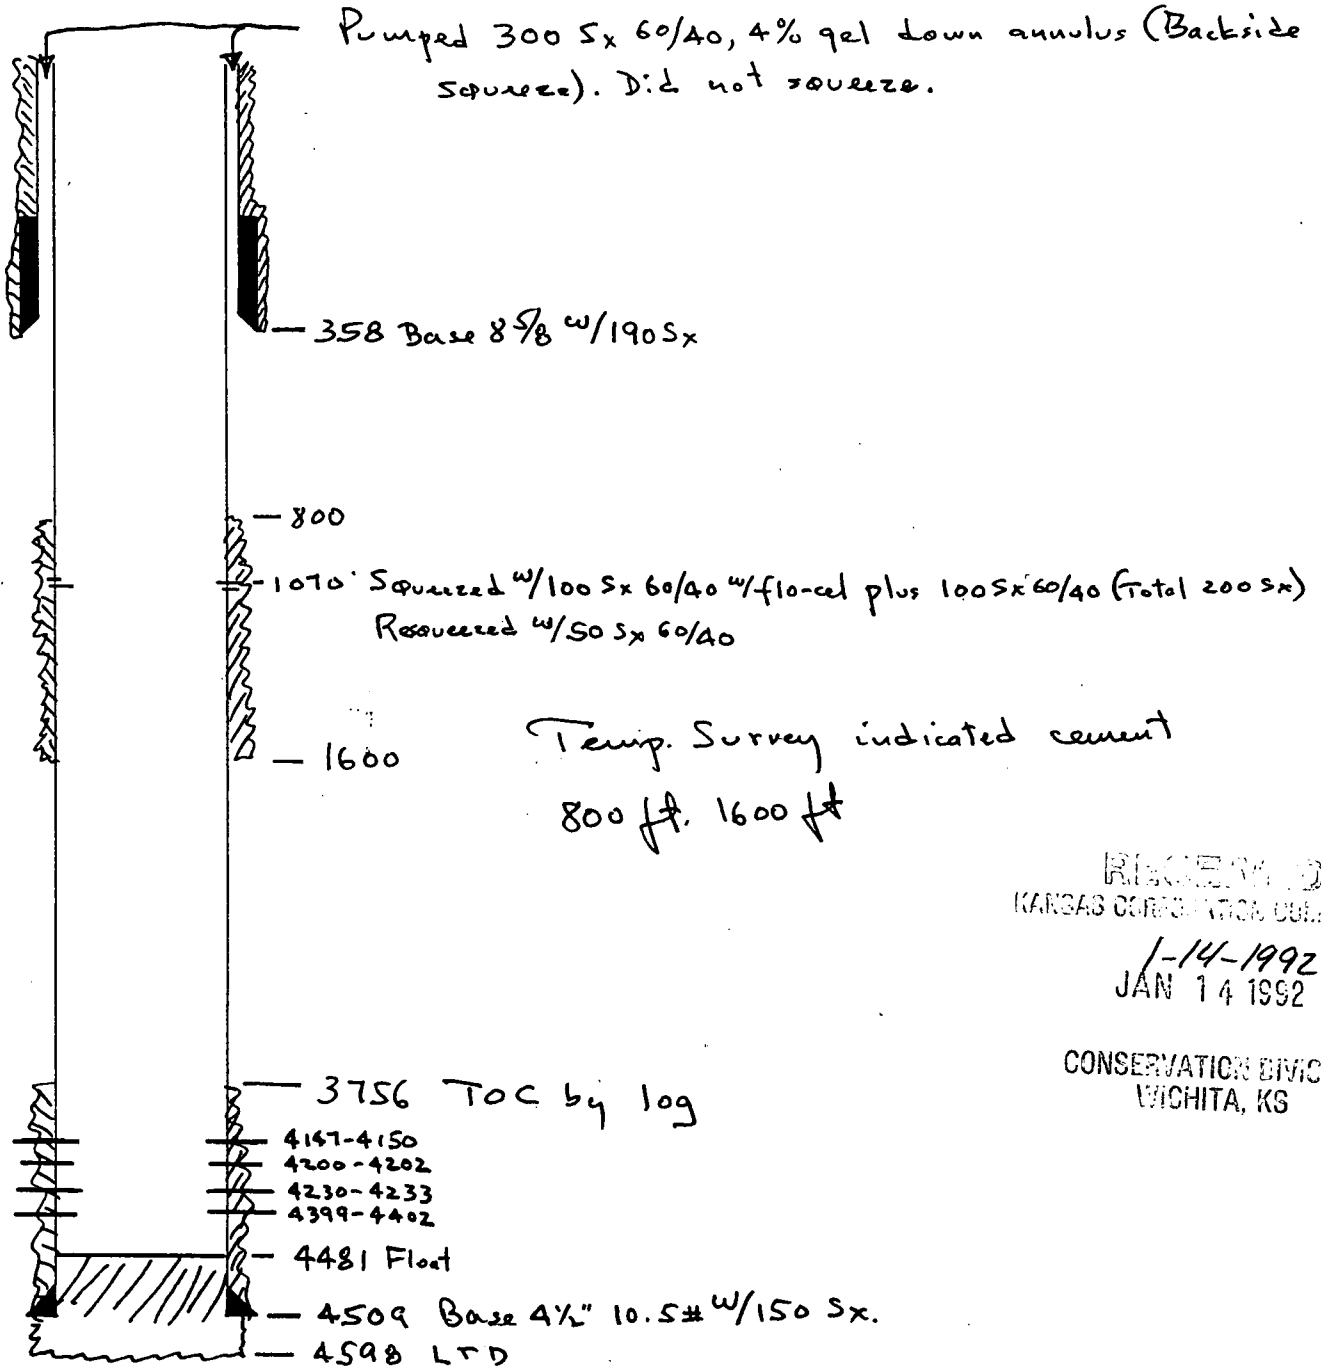 Pumped 300 Sx 60/40, 4% gel down annulus (Backside
squeeze). Did not squeeze.
358 Base 8 5/8 w/190 Sx
800
1070' Squeezed w/100 Sx 60/40 w/flo-cel plus 100 Sx 60/40 (Total 200 Sx)
Resqueezed w/50 Sx 60/40
1600
Temp. Survey indicated cement
800 ft. 1600 ft
KANSAS
1-14-1992
JAN 14 1992
CONSERVATION
WICHITA, KS
3756 TOC by log
4147-4150
4200-4202
4230-4233
4399-4402
4481 Float
4509 Base 4½" 10.5# w/150 Sx.
4598 LTD